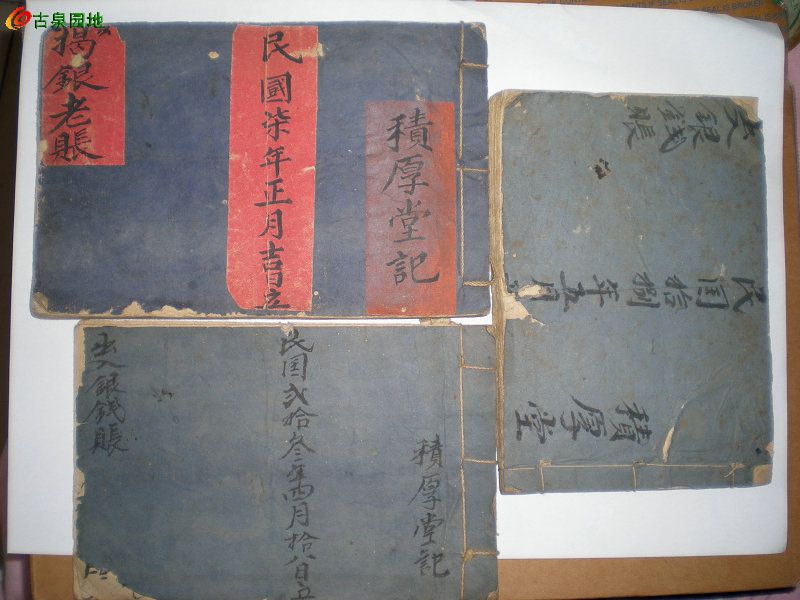 古泉园地
積厚堂記
民國柒年正月吉日立
銀老賬
積厚堂記
民国弍拾叁年四月拾八日立
出入銀錢賬
出入銀錢賬
民国拾捌年五月
積厚堂